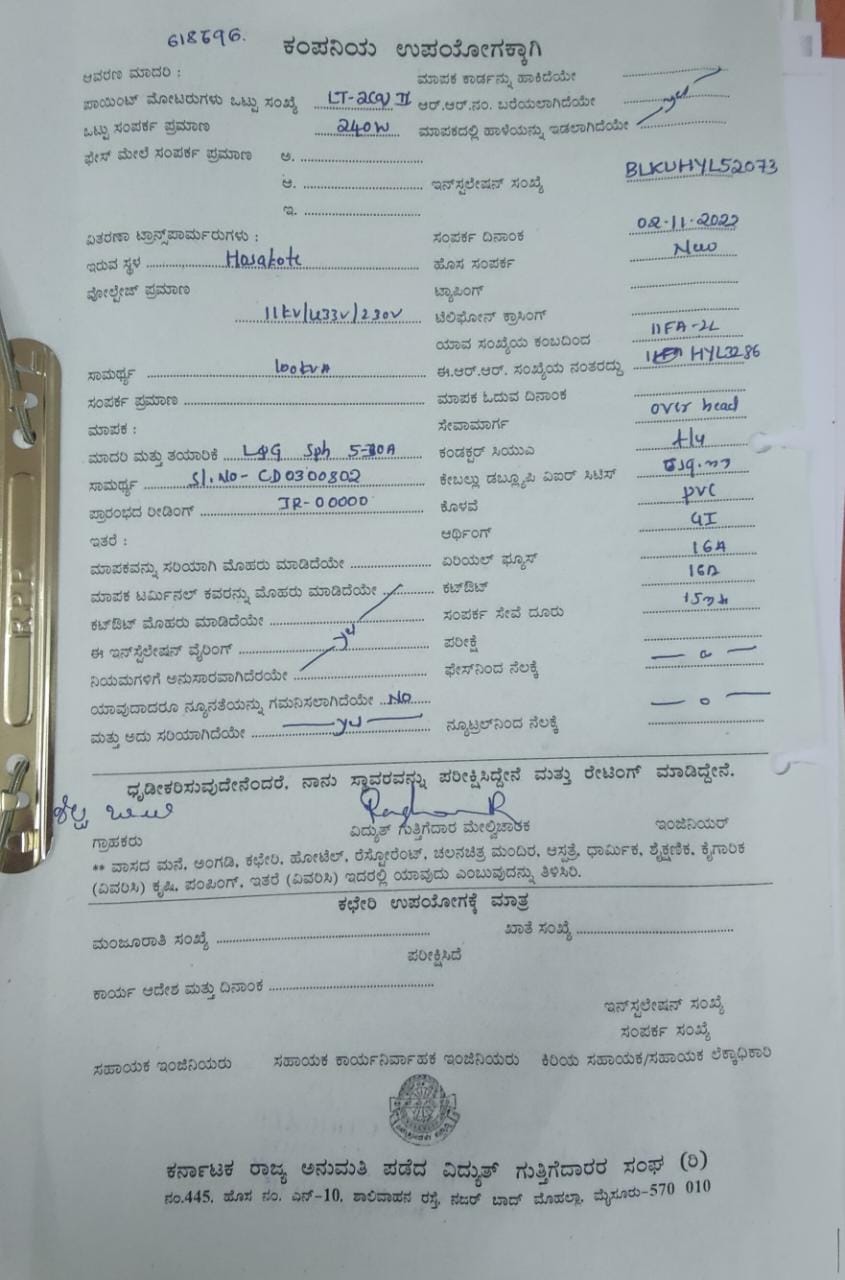 618596.
ಕಂಪನಿಯ ಉಪಯೋಗಕ್ಕಾಗಿ
ಆವರಣ ಮಾದರಿ : ಮಾಪಕ ಕಾರ್ಡನ್ನು ಹಾಕಿದೆಯೇ
ಪಾಯಿಂಟ್ ಮೋಟರುಗಳು ಒಟ್ಟು ಸಂಖ್ಯೆ LT-2(a) II ಆರ್.ಆರ್.ನಂ. ಬರೆಯಲಾಗಿದೆಯೇ
ಒಟ್ಟು ಸಂಪರ್ಕ ಪ್ರಮಾಣ 240W ಮಾಪಕದಲ್ಲಿ ಹಾಳೆಯನ್ನು ಇಡಲಾಗಿದೆಯೇ
ಫೇಸ್ ಮೇಲೆ ಸಂಪರ್ಕ ಪ್ರಮಾಣ ಅ.
ಆ. ಇನ್‌ಸ್ಟಲೇಷನ್ ಸಂಖ್ಯೆ BLKUHYL52073
ಇ.
ವಿತರಣಾ ಟ್ರಾನ್ಸ್‌ಪಾರ್ಮರುಗಳು : ಸಂಪರ್ಕ ದಿನಾಂಕ 02-11-2022
ಇರುವ ಸ್ಥಳ Hosakote ಹೊಸ ಸಂಪರ್ಕ New
ವೋಲ್ಟೇಜ್ ಪ್ರಮಾಣ ಟ್ಯಾಪಿಂಗ್
11kv/433v/230v ಟೆಲಿಫೋನ್ ಕ್ರಾಸಿಂಗ್
ಯಾವ ಸಂಖ್ಯೆಯ ಕಂಬದಿಂದ 11FA-2L
ಸಾಮರ್ಥ್ಯ 100kvA ಈ.ಆರ್.ಆರ್. ಸಂಖ್ಯೆಯ ನಂತರದ್ದು HYL3286
ಸಂಪರ್ಕ ಪ್ರಮಾಣ ಮಾಪಕ ಓದುವ ದಿನಾಂಕ
ಮಾಪಕ : ಸೇವಾಮಾರ್ಗ over head
ಮಾದರಿ ಮತ್ತು ತಯಾರಿಕೆ L&G Sph 5-30A ಕಂಡಕ್ಟರ್ ಸಿಯುವಿ
ಸಾಮರ್ಥ್ಯ Sl.No- CD0300802 ಕೇಬಲ್ಲು ಡಬ್ಲ್ಯೂಪಿ ವಿಐರ್ ಸಿಟಿಸ್
ಪ್ರಾರಂಭದ ರೀಡಿಂಗ್ IR-00000 ಕೊಳವೆ PVC
ಇತರೆ : ಆರ್ಥಿಂಗ್ GI
ಮಾಪಕವನ್ನು ಸರಿಯಾಗಿ ಮೊಹರು ಮಾಡಿದೆಯೇ ಏರಿಯಲ್ ಫ್ಯೂಸ್ 16A
ಮಾಪಕ ಟರ್ಮಿನಲ್ ಕವರನ್ನು ಮೊಹರು ಮಾಡಿದೆಯೇ ಕಟ್‌ಔಟ್ 16A
ಕಟ್‌ಔಟ್ ಮೊಹರು ಮಾಡಿದೆಯೇ ಸಂಪರ್ಕ ಸೇವೆ ದೂರು
ಈ ಇನ್‌ಸ್ಟೆಲೇಷನ್ ವೈರಿಂಗ್ ಪರೀಕ್ಷೆ
ನಿಯಮಗಳಿಗೆ ಅನುಸಾರವಾಗಿದೆರಯೇ ಫೇಸ್‌ನಿಂದ ನೆಲಕ್ಕೆ — 0 —
ಯಾವುದಾದರೂ ನ್ಯೂನತೆಯನ್ನು ಗಮನಿಸಲಾಗಿದೆಯೇ No
ಮತ್ತು ಅದು ಸರಿಯಾಗಿದೆಯೇ ನ್ಯೂಟ್ರಲ್‌ನಿಂದ ನೆಲಕ್ಕೆ — 0 —
ಧೃಡೀಕರಿಸುವುದೇನೆಂದರೆ, ನಾನು ಸ್ಥಾವರವನ್ನು ಪರೀಕ್ಷಿಸಿದ್ದೇನೆ ಮತ್ತು ರೇಟಿಂಗ್ ಮಾಡಿದ್ದೇನೆ.
ಗ್ರಾಹಕರು ವಿದ್ಯುತ್ ಗುತ್ತಿಗೆದಾರ ಮೇಲ್ವಿಚಾರಕ ಇಂಜಿನಿಯರ್
** ವಾಸದ ಮನೆ, ಅಂಗಡಿ, ಕಛೇರಿ, ಹೋಟೆಲ್, ರೆಸ್ಟೋರೆಂಟ್, ಚಲನಚಿತ್ರ ಮಂದಿರ, ಆಸ್ಪತ್ರೆ, ಧಾರ್ಮಿಕ, ಶೈಕ್ಷಣಿಕ, ಕೈಗಾರಿಕ
(ವಿವರಿಸಿ) ಕೃಷಿ, ಪಂಪಿಂಗ್, ಇತರೆ (ವಿವರಿಸಿ) ಇದರಲ್ಲಿ ಯಾವುದು ಎಂಬುವುದನ್ನು ತಿಳಿಸಿರಿ.
ಕಛೇರಿ ಉಪಯೋಗಕ್ಕೆ ಮಾತ್ರ
ಮಂಜೂರಾತಿ ಸಂಖ್ಯೆ ಖಾತೆ ಸಂಖ್ಯೆ
ಪರೀಕ್ಷಿಸಿದೆ
ಕಾರ್ಯ ಆದೇಶ ಮತ್ತು ದಿನಾಂಕ
ಇನ್‌ಸ್ಟಲೇಷನ್ ಸಂಖ್ಯೆ
ಸಂಪರ್ಕ ಸಂಖ್ಯೆ
ಸಹಾಯಕ ಇಂಜಿನಿಯರು ಸಹಾಯಕ ಕಾರ್ಯನಿರ್ವಾಹಕ ಇಂಜಿನಿಯರು ಕಿರಿಯ ಸಹಾಯಕ/ಸಹಾಯಕ ಲೆಕ್ಕಾಧಿಕಾರಿ
ಕರ್ನಾಟಕ ರಾಜ್ಯ ಅನುಮತಿ ಪಡೆದ ವಿದ್ಯುತ್ ಗುತ್ತಿಗೆದಾರರ ಸಂಘ (ರಿ)
ನಂ.445, ಹೊಸ ನಂ. ಎನ್-10, ಶಾಲಿವಾಹನ ರಸ್ತೆ, ನಜರ್ ಬಾದ್ ಮೊಹಲ್ಲಾ, ಮೈಸೂರು-570 010